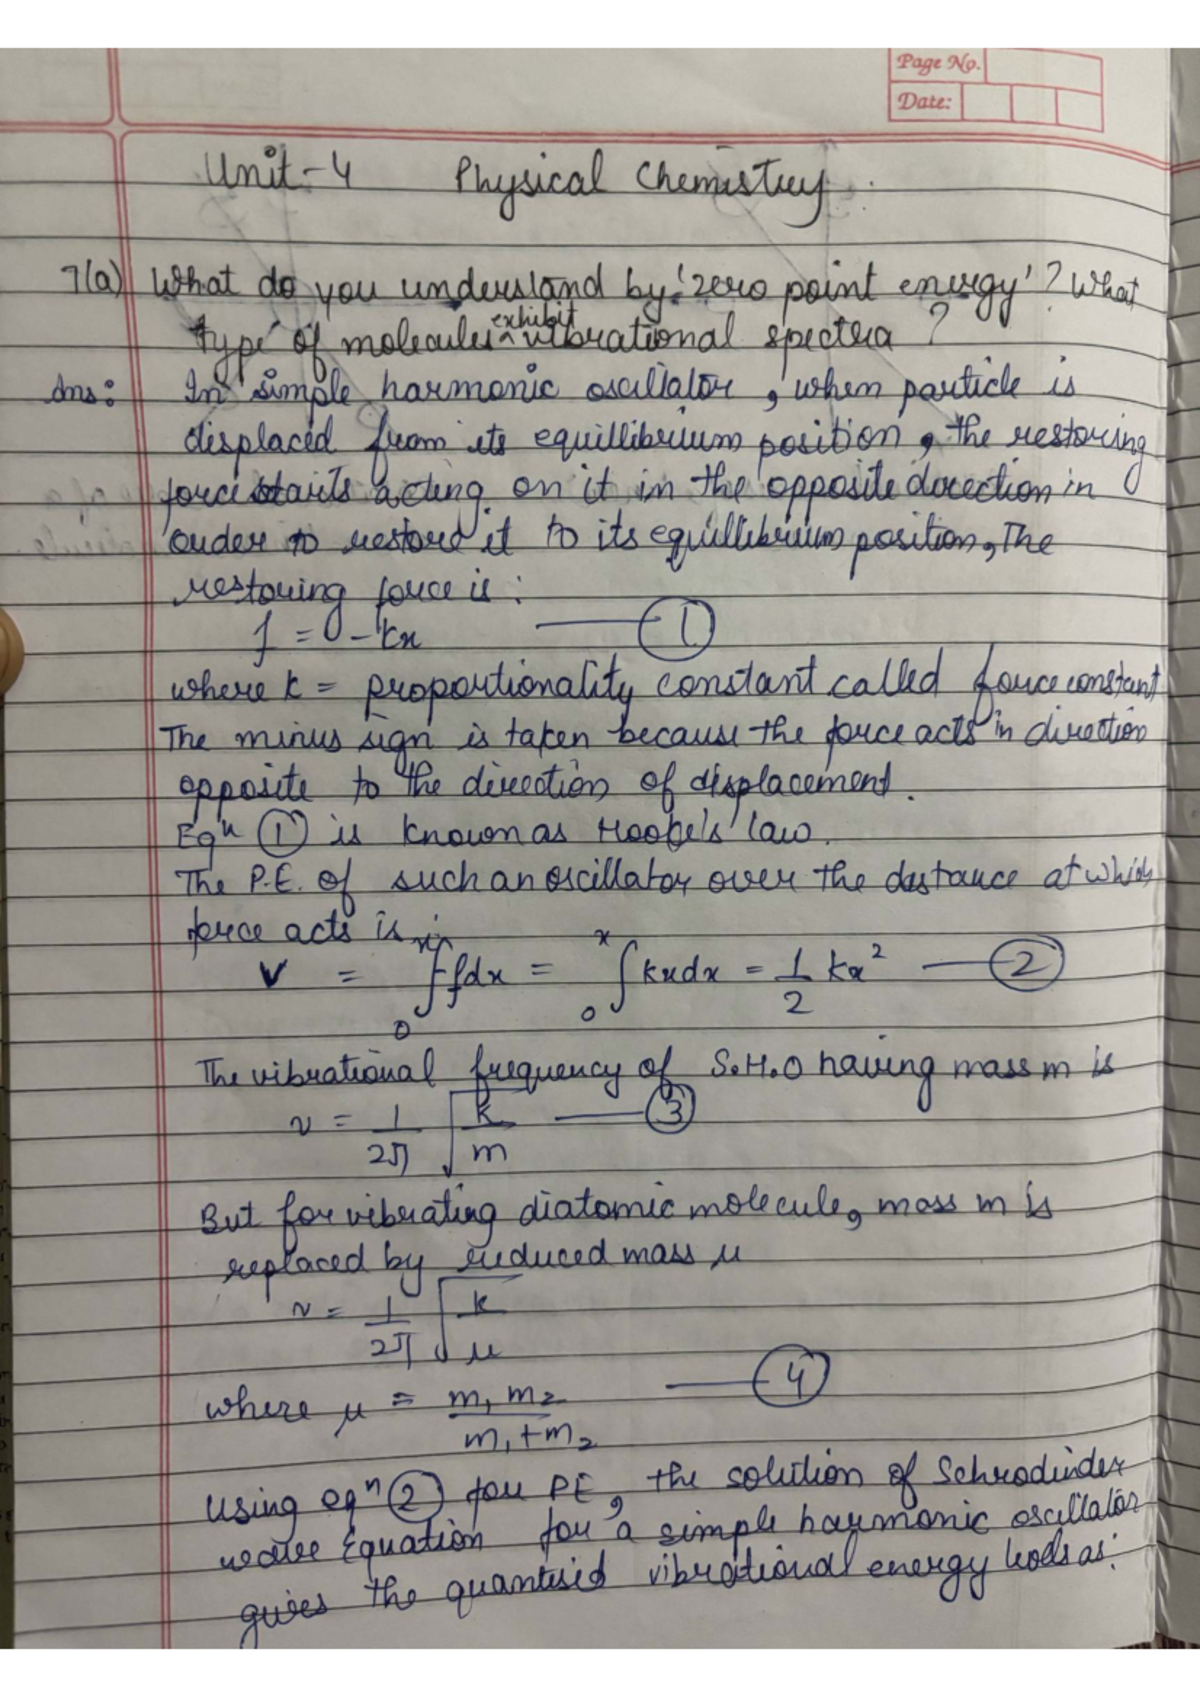 Page No.
Date:
Unit-4 Physical Chemistry
7(a) What do you understand by 'zero point energy'? What
type of molecules exhibit vibrational spectra ?
Ans: In simple harmonic oscillator, when particle is
displaced from its equillibrium position, the restoring
force starts acting on it in the opposite direction in
order to restore it to its equillibrium position, The
restoring force is :
f = - kx ——— ①
where k = proportionality constant called force constant
The minus sign is taken because the force acts in direction
opposite to the direction of displacement.
Eqⁿ ① is known as Hooke's law.
The P.E. of such an oscillator over the distance at which
force acts is
V = ∫₀ˣ -fdx = ∫₀ˣ kxdx = 1/2 kx² ——— ②
The vibrational frequency of S.H.O having mass m is
ν = 1/2π √k/m ——— ③
But for vibrating diatomic molecule, mass m is
replaced by reduced mass μ
ν = 1/2π √k/μ
where μ = m₁ m₂/m₁+m₂ ——— ④
Using eqⁿ ② for PE, the solution of Schrodinder
wave Equation for a simple harmonic oscillator
gives the quantised vibrational energy levels as: